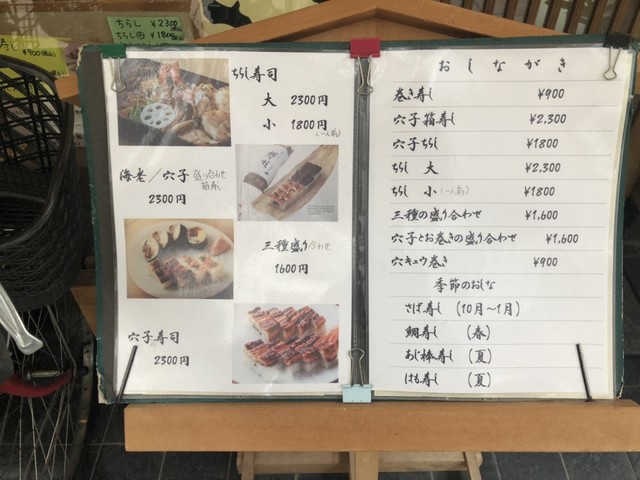 ちらし ¥2300
ちらし 小 ¥1800
寿し ¥900
ちらし寿司
大 2300円
小 1800円
(一人前)
海老/穴子 盛り合わせ
箱寿し
2300円
三種盛り合わせ
1600円
穴子寿司
2300円
おしながき
巻き寿し ¥900
穴子箱寿し ¥2,300
穴子ちらし ¥1800
ちらし 大 ¥2,300
ちらし 小 (一人前) ¥1800
三種の盛り合わせ ¥1,600
穴子とお巻きの盛り合わせ ¥1,600
穴キュウ巻き ¥900
季節のおしな
さば寿し (10月〜1月)
鯛寿し (春)
あじ棒寿し (夏)
はも寿し (夏)